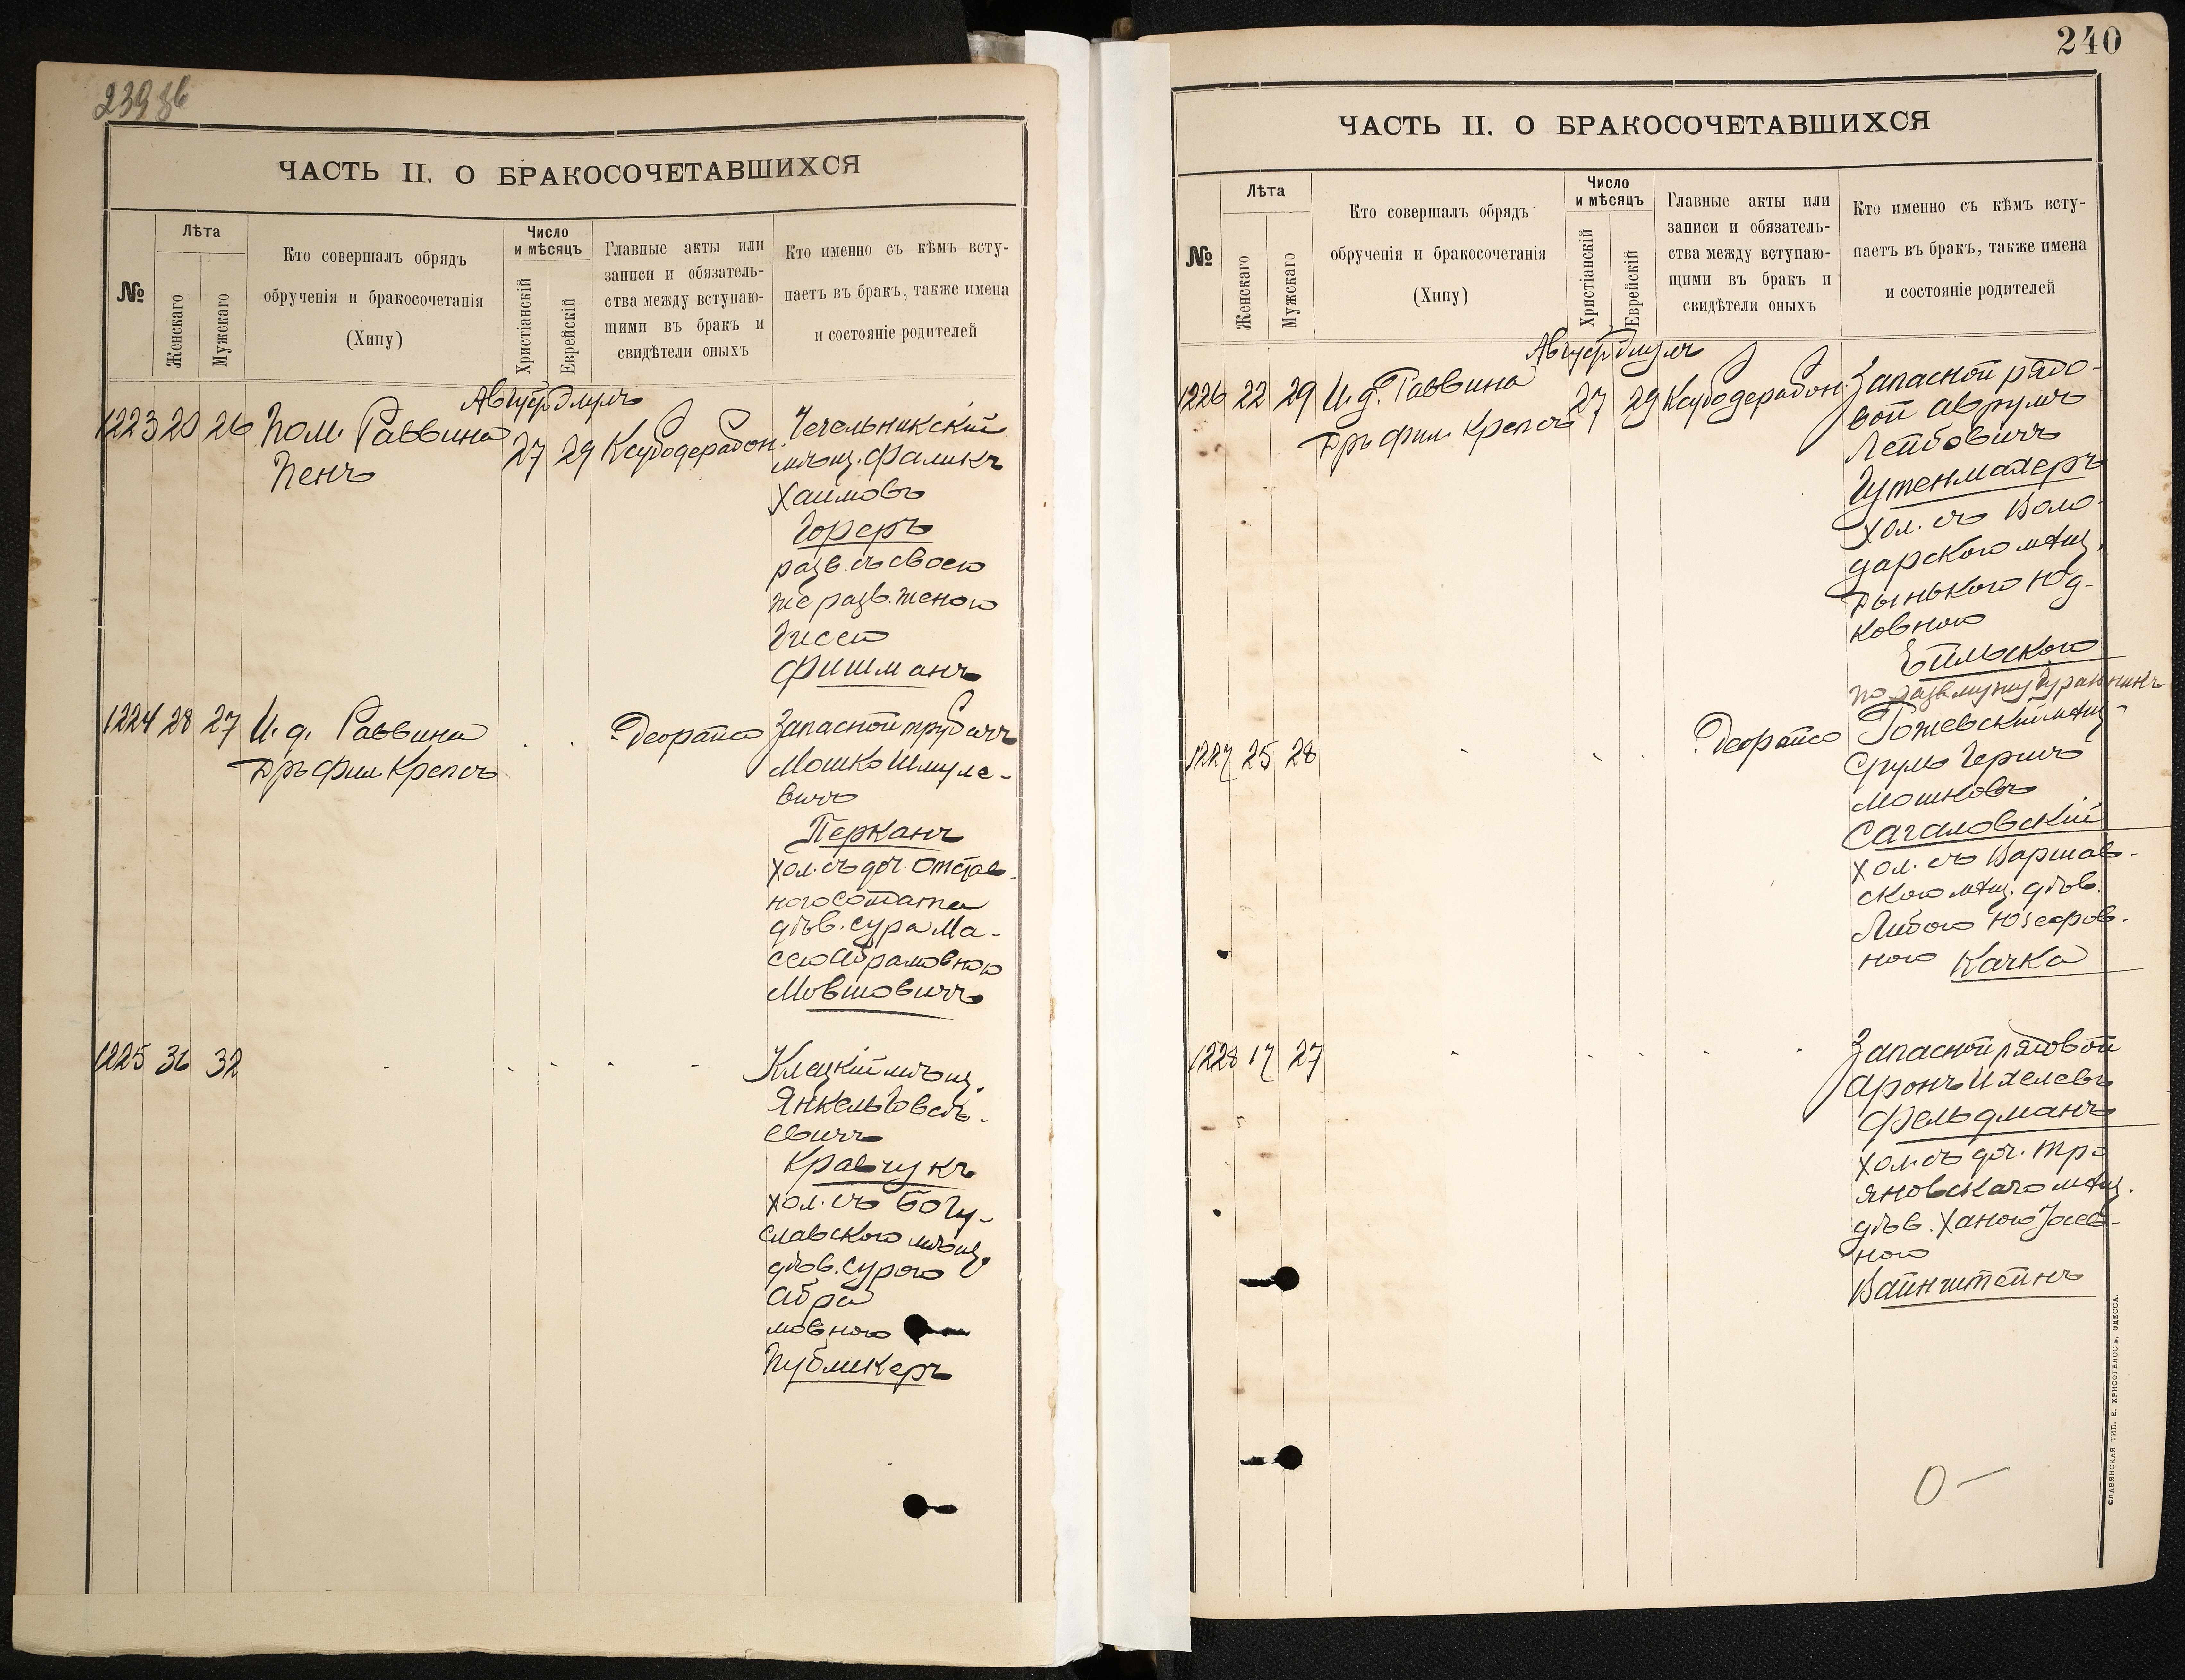 239 зв
ЧАСТЬ II. О БРАКОСОЧЕТАВШИХСЯ
№
Лѣта
Женскаго
Мужскаго
Кто совершалъ обрядъ
обрученія и бракосочетанія
(Хипу)
Число
и мѣсяцъ
Христіанскій
Еврейскій
Главные акты или
записи и обязатель-
ства между вступаю-
щими въ бракъ и
свидѣтели оныхъ
Кто именно съ кѣмъ всту-
паетъ въ бракъ, также имена
и состояніе родителей
Август Элулъ
1223 20 26 Пом. Раввина 27 29
Пенъ
Чечельникскій
мѣщ. Фаликъ
Хаимовъ
Гореръ
разв. съ своею
же разв. женою
Гисею
Фишманъ
1224 28 27 И. д. Раввина
Дръ фил Крепсъ
Деорайсо
Запасной трубачъ
Мошко Шмуле-
вичъ
Перканъ
хол. съ доч. отстав-
ного солдата
дѣв. Сура Ма-
сею Абрамовною
Мовшовичъ
1225 36 32
Клецкій мѣщ.
Янкель Говсѣ-
евичъ
Кравчукъ
хол. съ Богу-
славского мѣщ
дѣв. Сурою
Абра
мовною
Публикеръ
240
ЧАСТЬ II. О БРАКОСОЧЕТАВШИХСЯ
№
Лѣта
Женскаго
Мужскаго
Кто совершалъ обрядъ
обрученія и бракосочетанія
(Хипу)
Число
и мѣсяцъ
Христіанскій
Еврейскій
Главные акты или
записи и обязатель-
ства между вступаю-
щими въ бракъ и
свидѣтели оныхъ
Кто именно съ кѣмъ всту-
паетъ въ бракъ, также имена
и состояніе родителей
Август Элулъ
1226 22 29 И. д. Раввина 27 29
Дръ фил. Крепсъ
Запасной рядо-
вой Аврумъ
Лейбовичъ
Гутенмахеръ
хол. съ Воло-
дарского мѣщ.
Дынького Юд-
ковною
Ейльского
1227 25 28
Деорайсо
Рожевскій мѣщ-
Срумъ Гершъ
Мошковъ
Сагаловскій
хол. съ Варшав-
ского мѣщ. дѣв.
Либою Юзефов-
ною Качка
1228 17 27
Запасной рядовой
Аронъ Ихелевъ
Фельдманъ
хол. съ доч. Тро
яновскаго мѣщ.
дѣв. Ханою Іосев-
ною
Вайнштейнъ
СЛАВЯНСКАЯ ТИП. Е. ХРИСОГЕЛОСЪ, ОДЕССА.